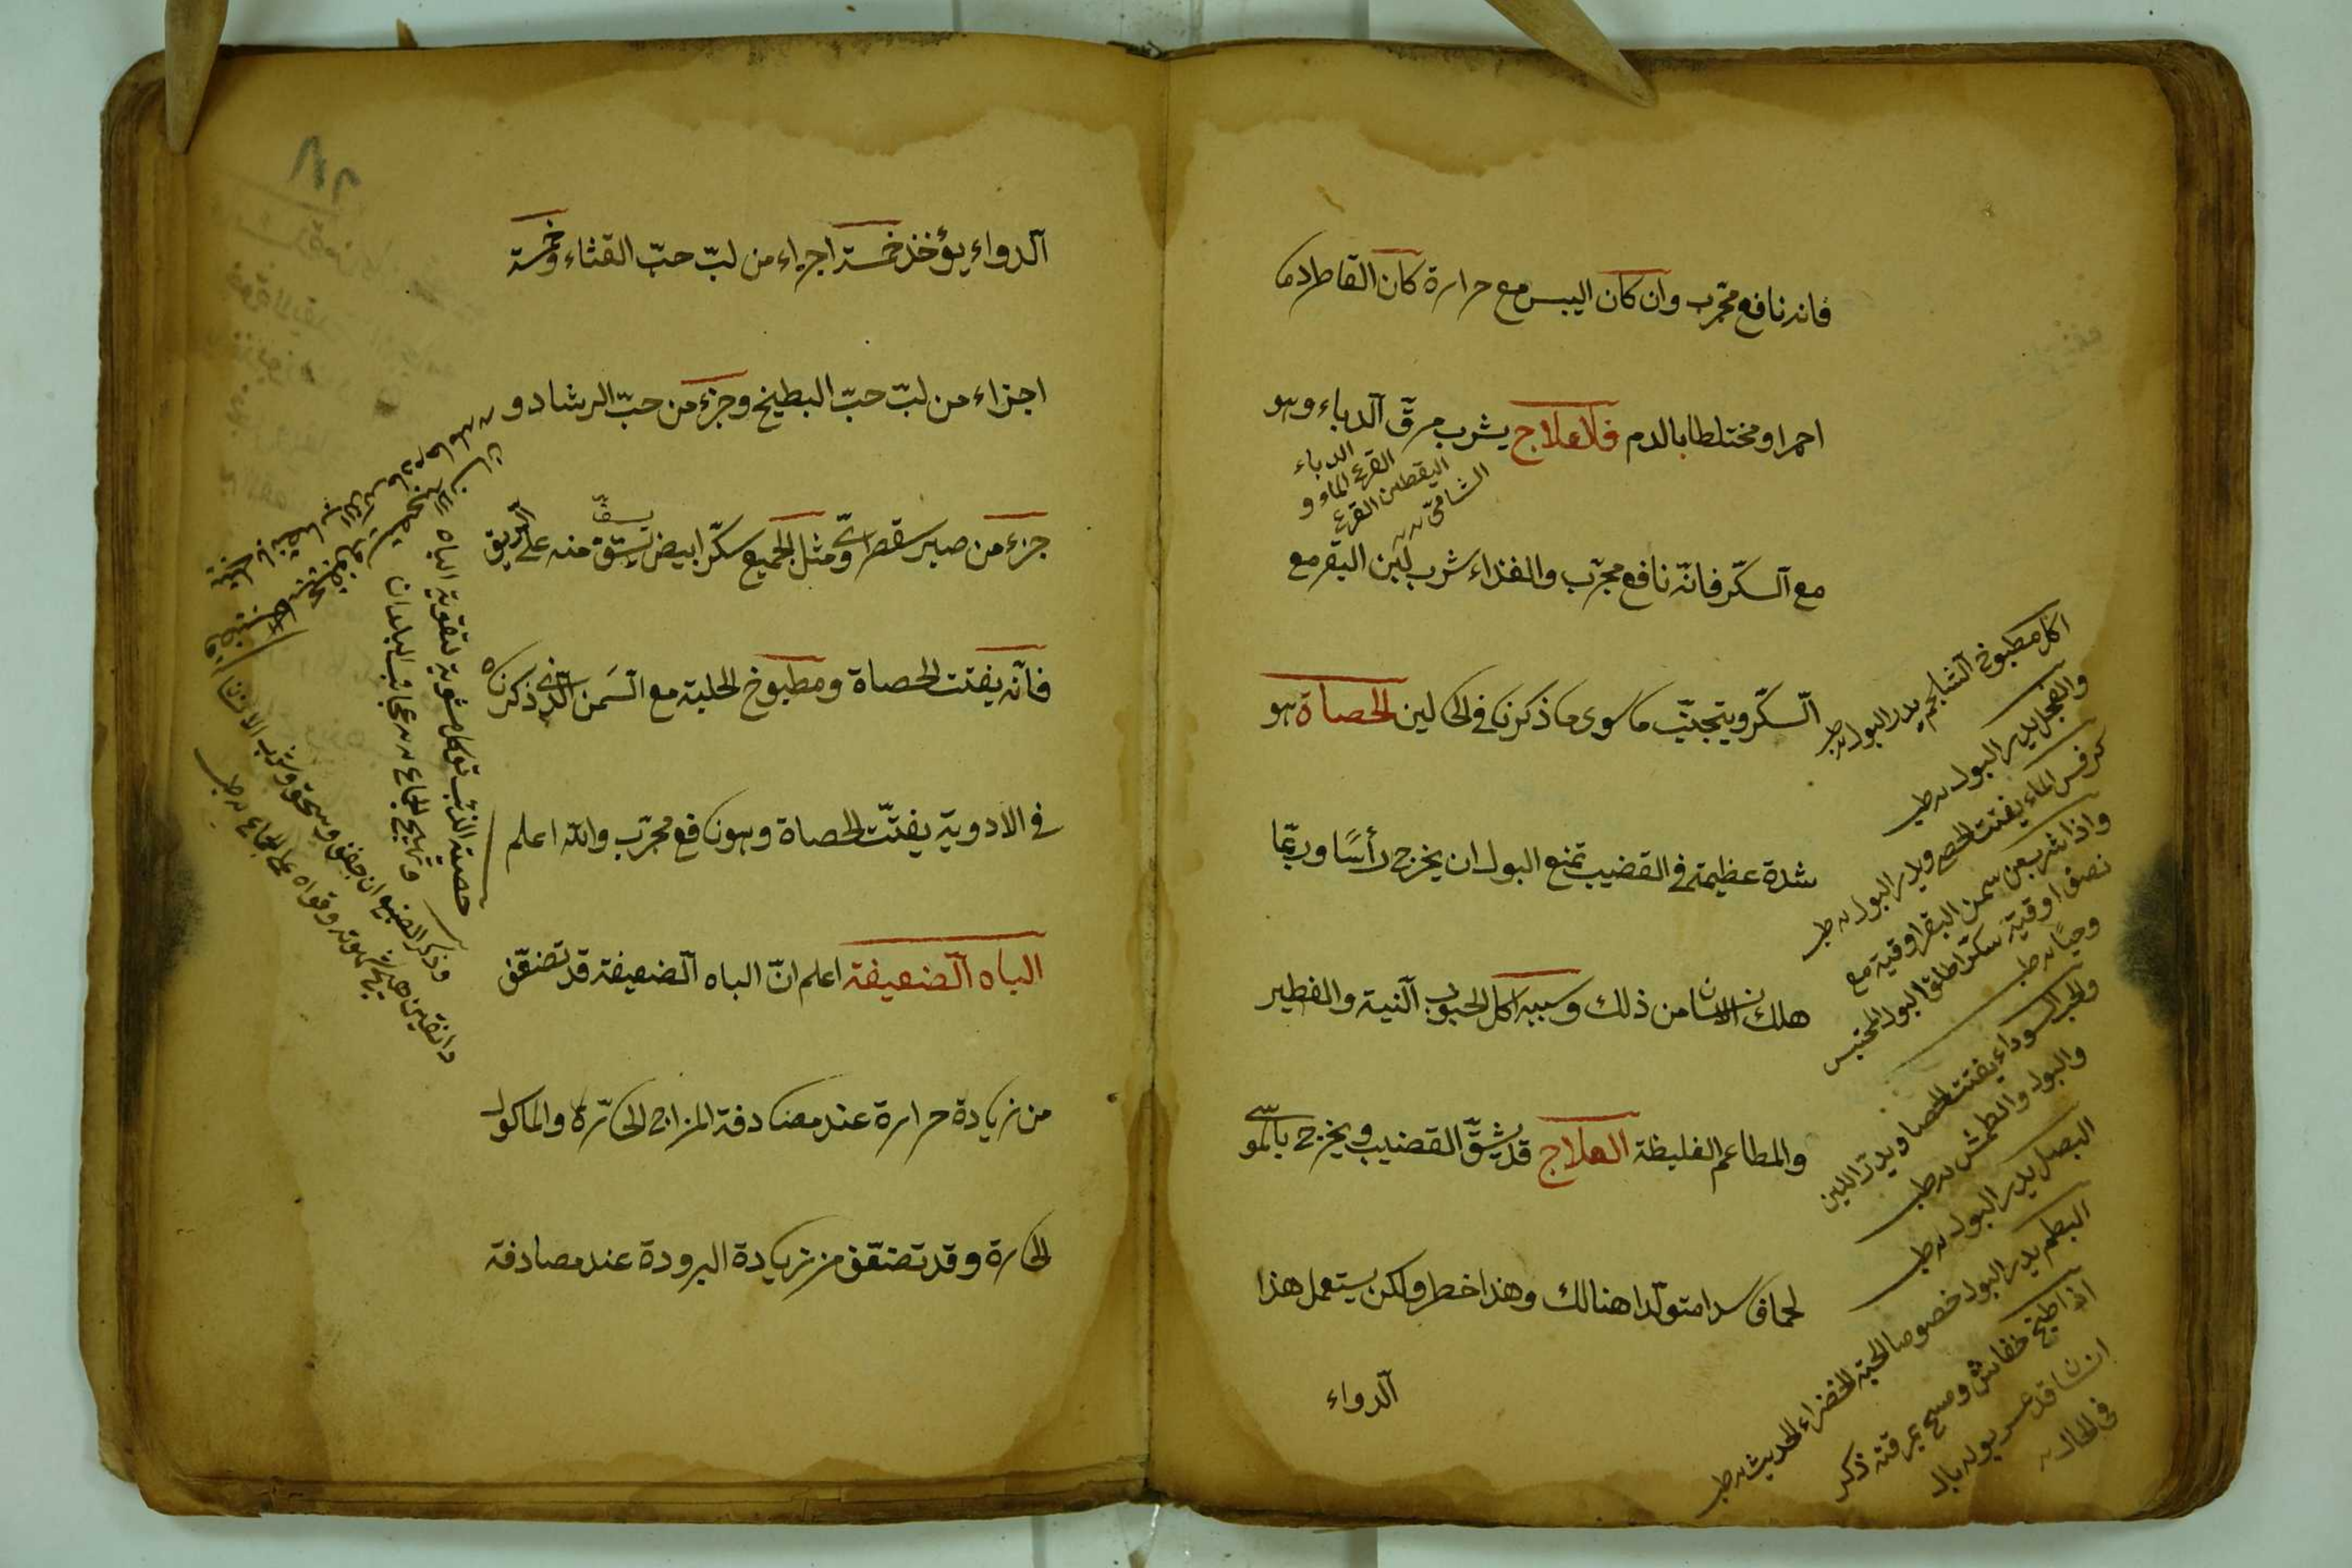 فانه نافع مجرّب وان كان اليبس مع حرارة كان القاطر دما
احمرا ومختلطا بالدم فالعلاج يشرب مرق الدباء وهو
الدباء
القرع الماء و
اليقطين القرع
الشامي
مع السكّر فانّه نافع مجرّب والغذاء شرب لبن البقر مع
السكّر ويتجنّب ما سوى ما ذكرنا في الحالين الحصاة هو
شدة عظيمة في القضيب تمنع البول ان يخرج رأسًا وربّما
هلك الانسان من ذلك وسببه اكل الحبوب النية والفطير
والمطاعم الغليظة العلاج قد يشقّ القضيب ويخرج بالموسّى
لحما فاسدا متولّدا هنالك وهذا خطر ولكن يستعمل هذا
الدواء
اكل مطبوخ الشلجم يدر البول طب
والفجل يدر البول طب
كرفس الماء يفتت الحصى ويدر البول طب
واذا شرب من سمن البقر اوقية مع
نصف اوقية سكّر اطلق البول المحتبس
وحيًا طب
والجزر السوداء يفتت الحصا ويدرّ اللبن
والبول والطمث طب
البصل يدر البول طب
البطم يدر البول خصوصا الحبة الخضراء الحديث طب
اذا طبخ خفاش ومسح بمرقته ذكر
انسان قد عسر بوله بال
في الحال
الدواء يؤخذ خمسة اجزاء من لبّ حبّ القثاء وخمسة
اجزاء من لبّ حبّ البطيخ وجزء من حبّ الرشاد و
جزء من صبر سقطرى ومثل الجميع سكّر ابيض يستفّ منه على الريق
يسفّ
فانّه يفتت الحصاة ومطبوخ الحلبة مع السمن الذي ذكرناه
في الادوية يفتّت الحصاة وهو نافع مجرّب والله اعلم
الباه الضعيفة اعلم انّ الباه الضعيفة قد تضعّف
من زيادة حرارة عند مصادفة المزاج الحارّة والماكول
الحارة وقد تضعّف من زيادة البرودة عند مصادفة
حصية الذئب توكل مشوية لتقوية الباه
وتهيج الجماع من عجائب البلدان